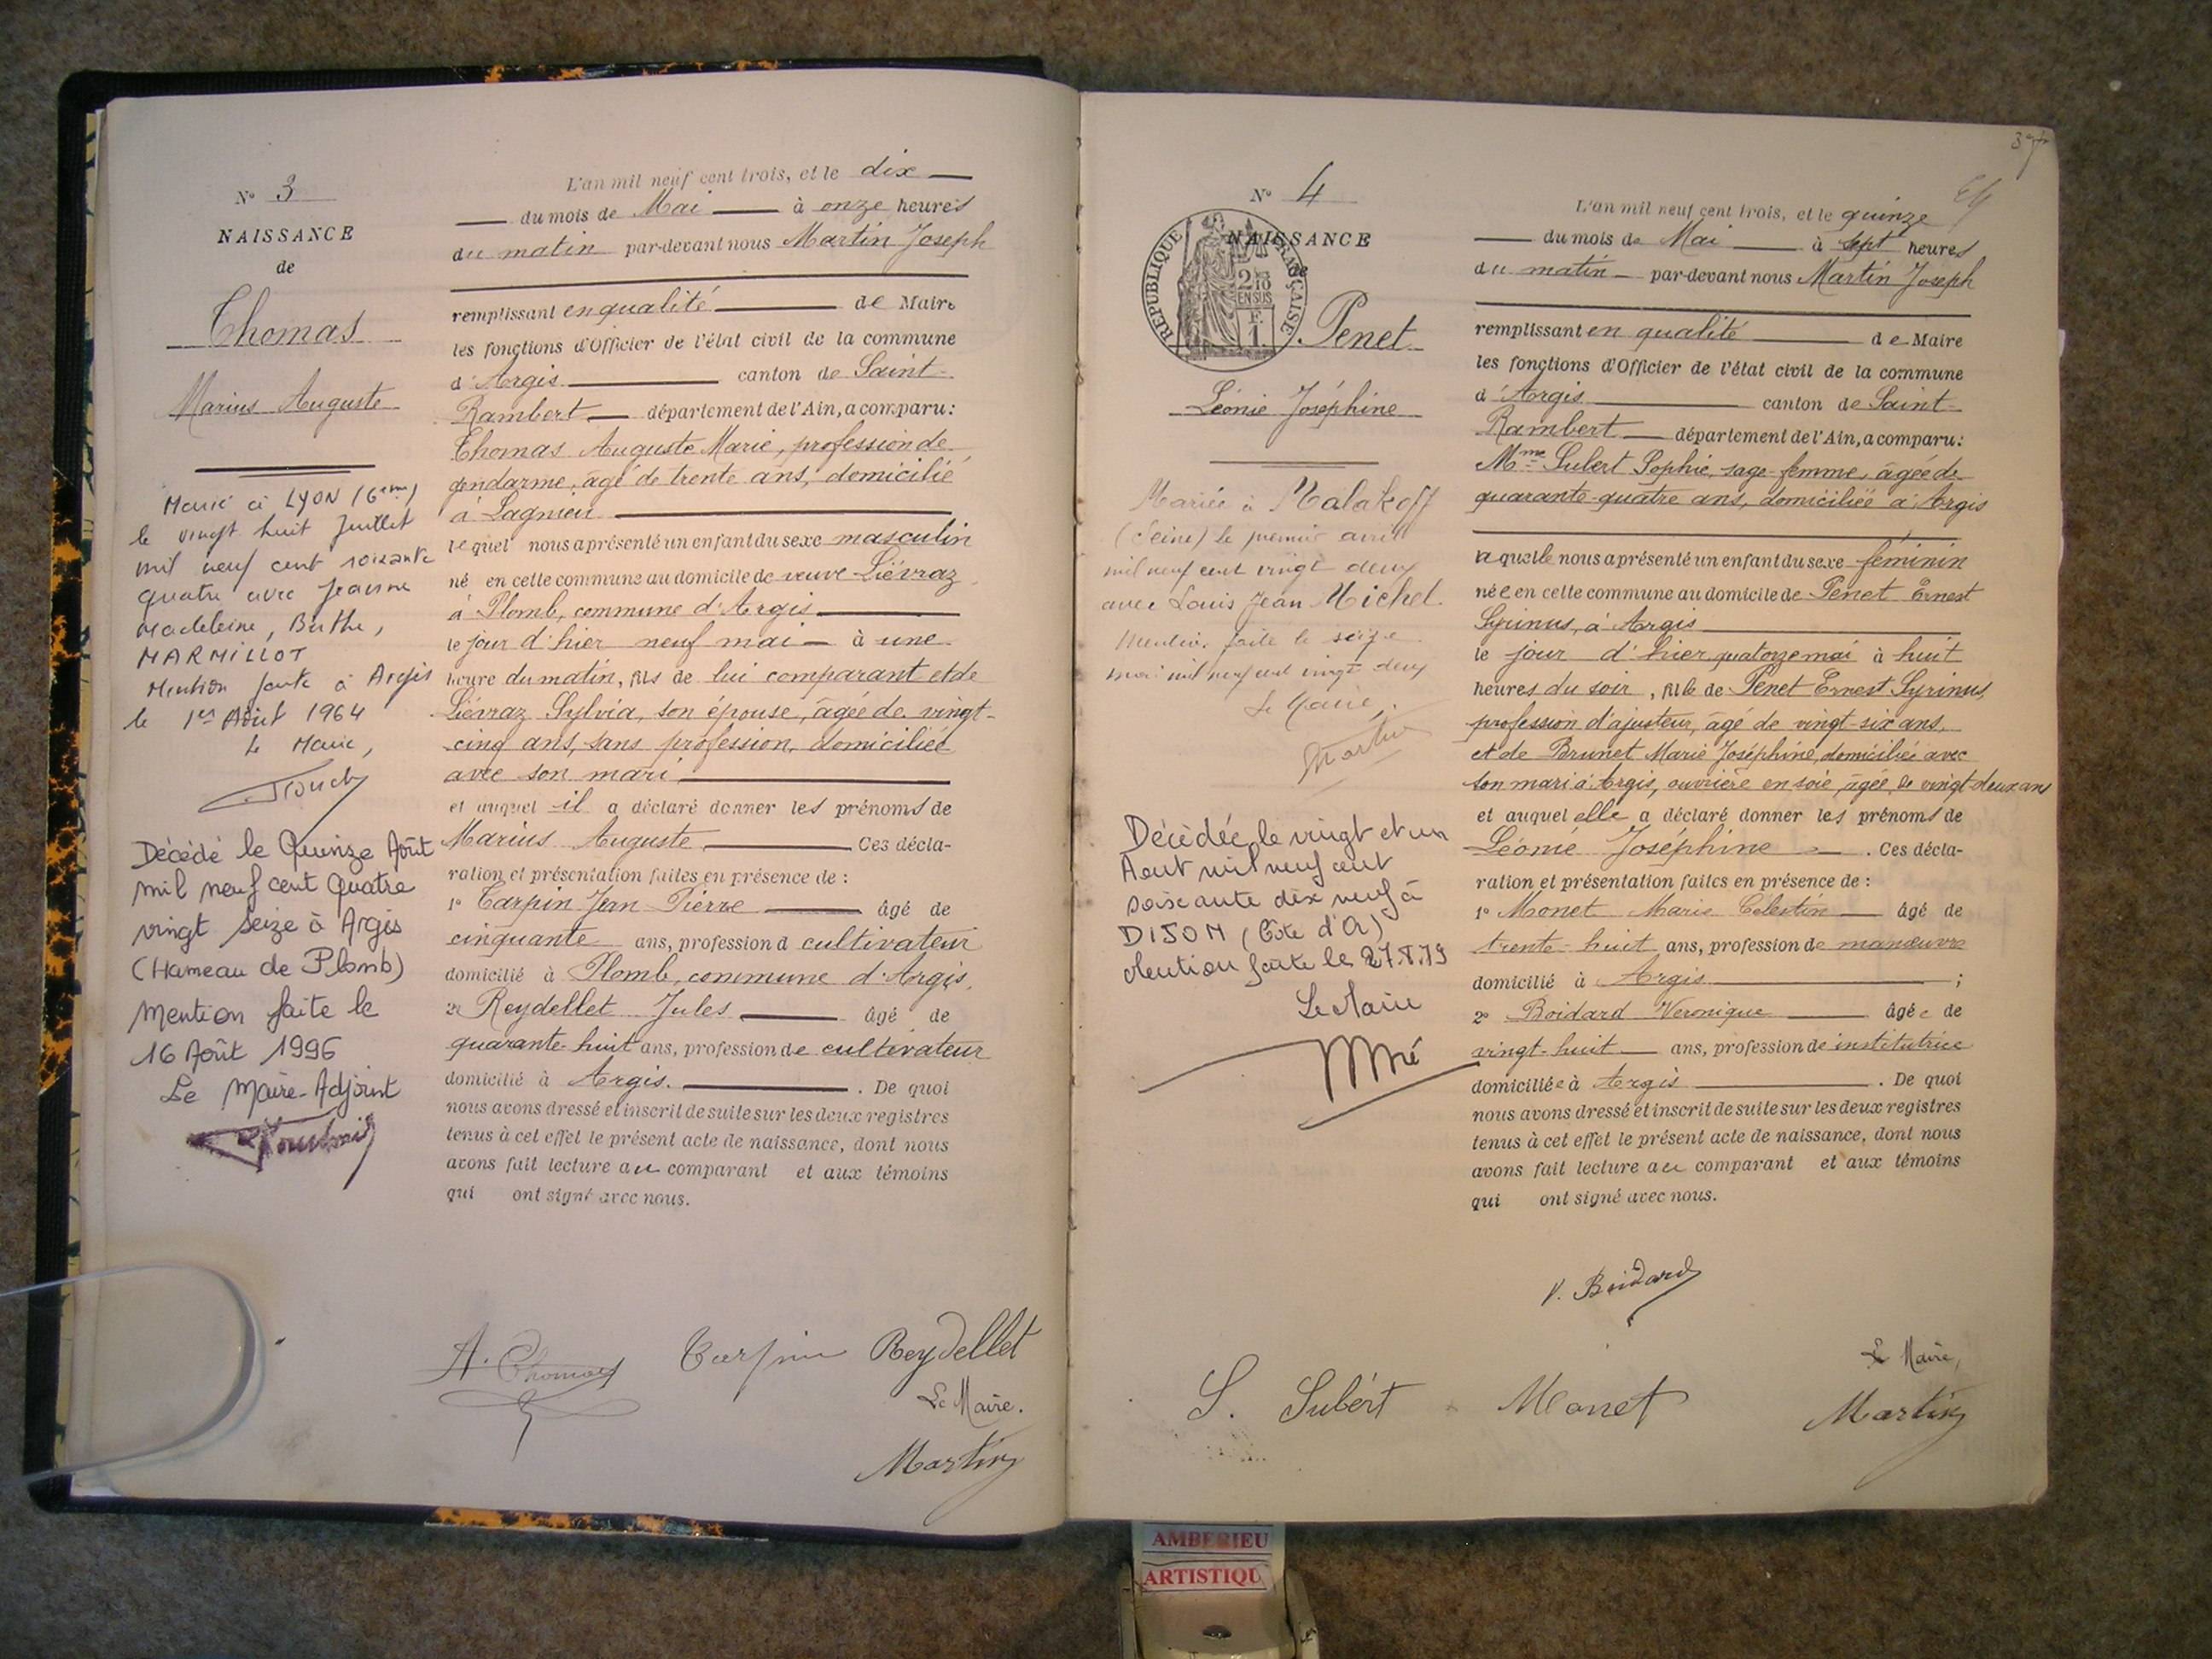 N° 3
NAISSANCE
de
Thomas
Marius Auguste
Marié à LYON (6eme)
le vingt huit Juillet
mil neuf cent soixante
quatre avec Jeanne
Madeleine, Berthe,
MARMILLOT
Mention faite à Argis
le 1er Août 1964
Le Maire,
Décédé le Quinze Août
mil neuf cent quatre
vingt seize à Argis
(Hameau de Plomb)
Mention faite le
16 Août 1996
Le Maire-Adjoint
L'an mil neuf cent trois, et le dix
du mois de Mai à onze heures
du matin par-devant nous Martin Joseph
remplissant en qualité de Maire
les fonctions d'Officier de l'état civil de la commune
d'Argis canton de Saint-
Rambert département de l'Ain, a comparu :
Thomas Auguste Marie, profession de
gendarme, âgé de trente ans, domicilié
à Lagnieu
lequel nous a présenté un enfant du sexe masculin
né en cette commune au domicile de veuve Liévraz
à Plomb, commune d'Argis
le jour d'hier neuf mai à une
heure du matin, fils de lui comparant et de
Liévraz Sylvia, son épouse, âgée de vingt-
cinq ans, sans profession, domiciliée
avec son mari
et auquel il a déclaré donner les prénoms de
Marius Auguste Ces décla-
ration et présentation faites en présence de :
1° Carpin Jean Pierre âgé de
cinquante ans, profession d cultivateur
domicilié à Plomb, commune d'Argis,
2° Reydellet Jules âgé de
quarante-huit ans, profession de cultivateur
domicilié à Argis. . De quoi
nous avons dressé et inscrit de suite sur les deux registres
tenus à cet effet le présent acte de naissance, dont nous
avons fait lecture au comparant et aux témoins
qui ont signé avec nous.
A. Thomas Carpin Reydellet
Le Maire.
Martin
N° 4
NAISSANCE
de
REPUBLIQUE FRANÇAISE
2/10
EN SUS
F.
1.
Penet
Léonie Joséphine
Mariée à Malakoff
(Seine) le premier avril
mil neuf cent vingt deux
avec Louis Jean Michel
Mention faite le seize
mai mil neuf cent vingt deux
Le Maire,
Martin
Décédée le vingt et un
Aout mil neuf cent
soixante dix neuf à
DIJON (Côte d'Or)
Mention faite le 27.8.79
Le Maire
L'an mil neuf cent trois, et le quinze
du mois de Mai à sept heures
du matin par-devant nous Martin Joseph
remplissant en qualité de Maire
les fonctions d'Officier de l'état civil de la commune
d'Argis canton de Saint-
Rambert département de l'Ain, a comparu :
Mme Subert Sophie, sage-femme, âgée de
quarante-quatre ans, domiciliée à Argis
laquelle nous a présenté un enfant du sexe féminin
née en cette commune au domicile de Penet Ernest
Syrinus, à Argis
le jour d'hier, quatorze mai à huit
heures du soir, fille de Penet Ernest Syrinus,
profession d'ajusteur, âgé de vingt-six ans,
et de Brunet Marie Joséphine, domiciliée avec
son mari à Argis, ouvrière en soie, âgée de vingt-deux ans
et auquel elle a déclaré donner les prénoms de
Léonie Joséphine . Ces décla-
ration et présentation faites en présence de :
1° Monet Marie Célestin âgé de
trente-huit ans, profession de manœuvre
domicilié à Argis ;
2° Boidard Veronique âgée de
vingt-huit ans, profession de institutrice
domiciliée à Argis . De quoi
nous avons dressé et inscrit de suite sur les deux registres
tenus à cet effet le présent acte de naissance, dont nous
avons fait lecture au comparant et aux témoins
qui ont signé avec nous.
V. Boidard
Le Maire,
S. Subert Monet Martin
AMBERIEU
ARTISTIQU